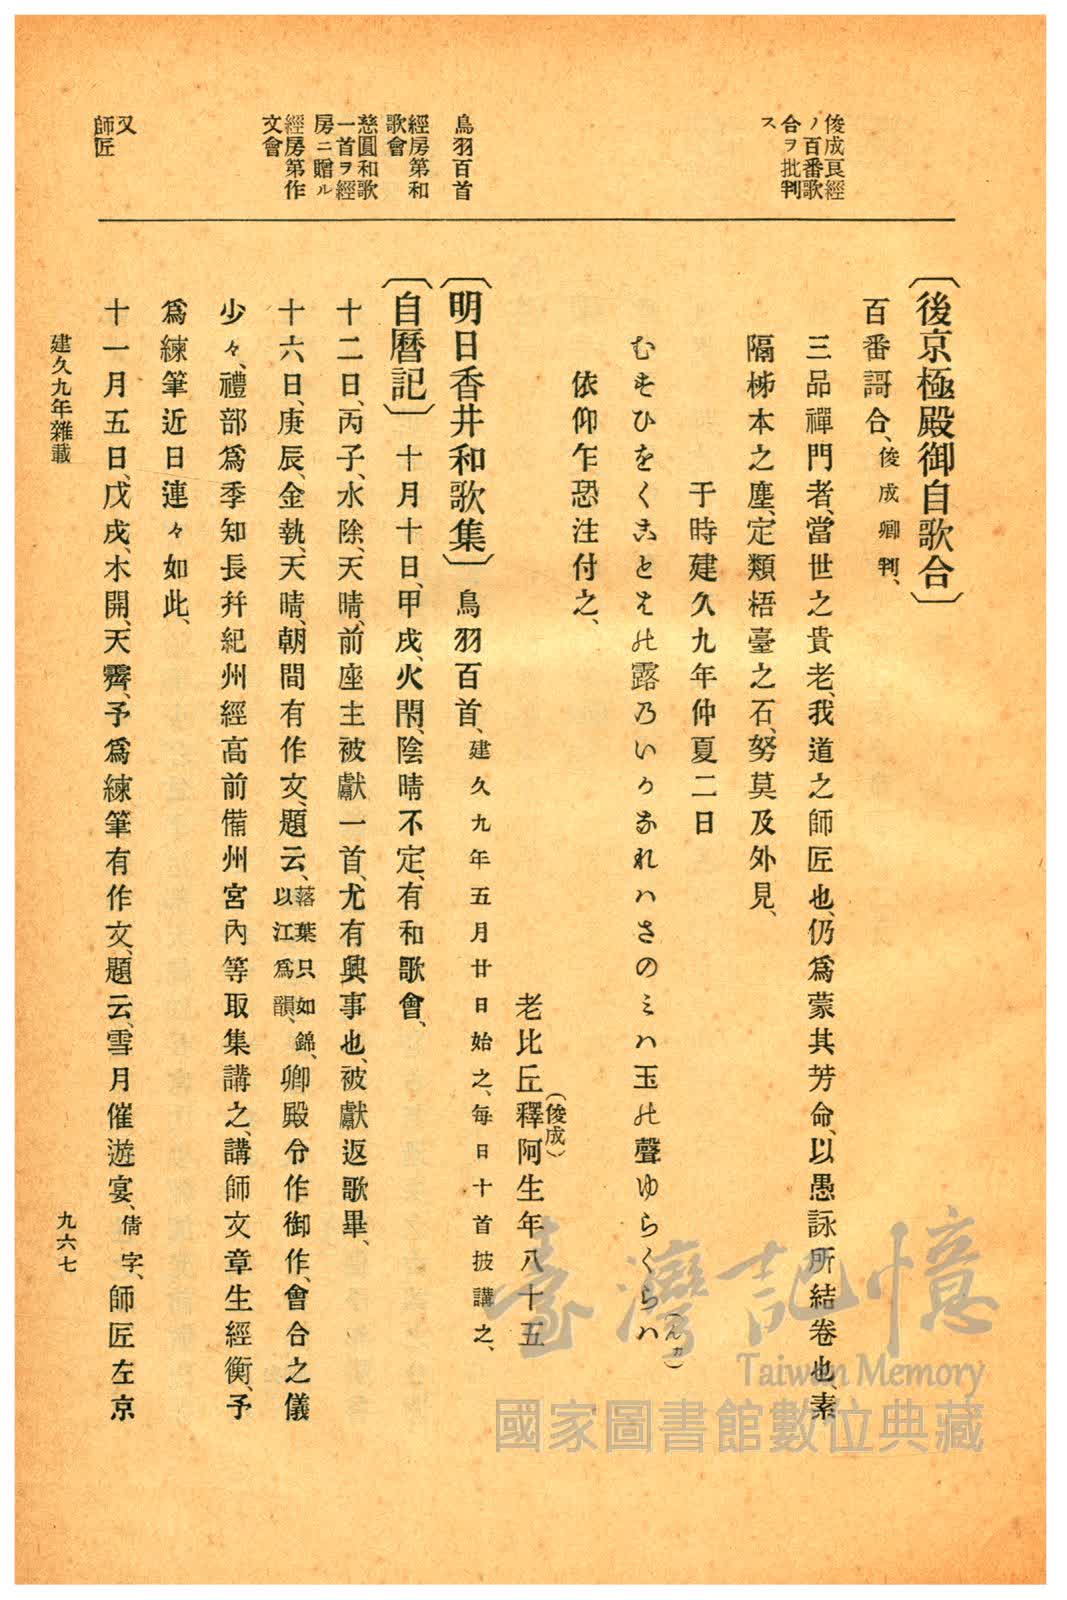 俊成良經
ノ百番歌
合ヲ批判
ス
鳥羽百首
經房第和
歌會
慈圓和歌
一首ヲ經
房ニ贈ル
經房第作
文會
又
師匠
〔後京極殿御自歌合〕
百番謌合、俊成卿判、
三品禪門者、當世之貴老、我道之師匠也、仍爲蒙其芳命、以愚詠所結卷也、素
隔柹本之塵、定類梧臺之石、努莫及外見、
于時建久九年仲夏二日
むすひをくことはの露乃いろなれハさのミハ玉の聲ゆらくらハ
(んカ)
依仰乍恐注付之、
老比丘釋阿生年八十五
(俊成)
〔明日香井和歌集〕鳥羽百首、建久九年五月廿日始之、每日十首披講之、
〔自曆記〕十月十日、甲戌、火閇、陰晴不定、有和歌會、
十二日、丙子、水除、天晴、前座主被獻一首、尤有興事也、被獻返歌畢、
十六日、庚辰、金執、天晴、朝間有作文、題云、落葉只如錦、以江爲韻、卿殿令作御作、會合之儀
少々、禮部爲季知長幷紀州經高前備州宮內等取集講之、講師文章生經衡、予
爲練筆近日連々如此、
十一月五日、戊戌、木開、天霽、予爲練筆有作文、題云、雪月催遊宴、倩字、師匠左京
建久九年雜載
九六七
臺灣記憶
Taiwan Memory
國家圖書館數位典藏